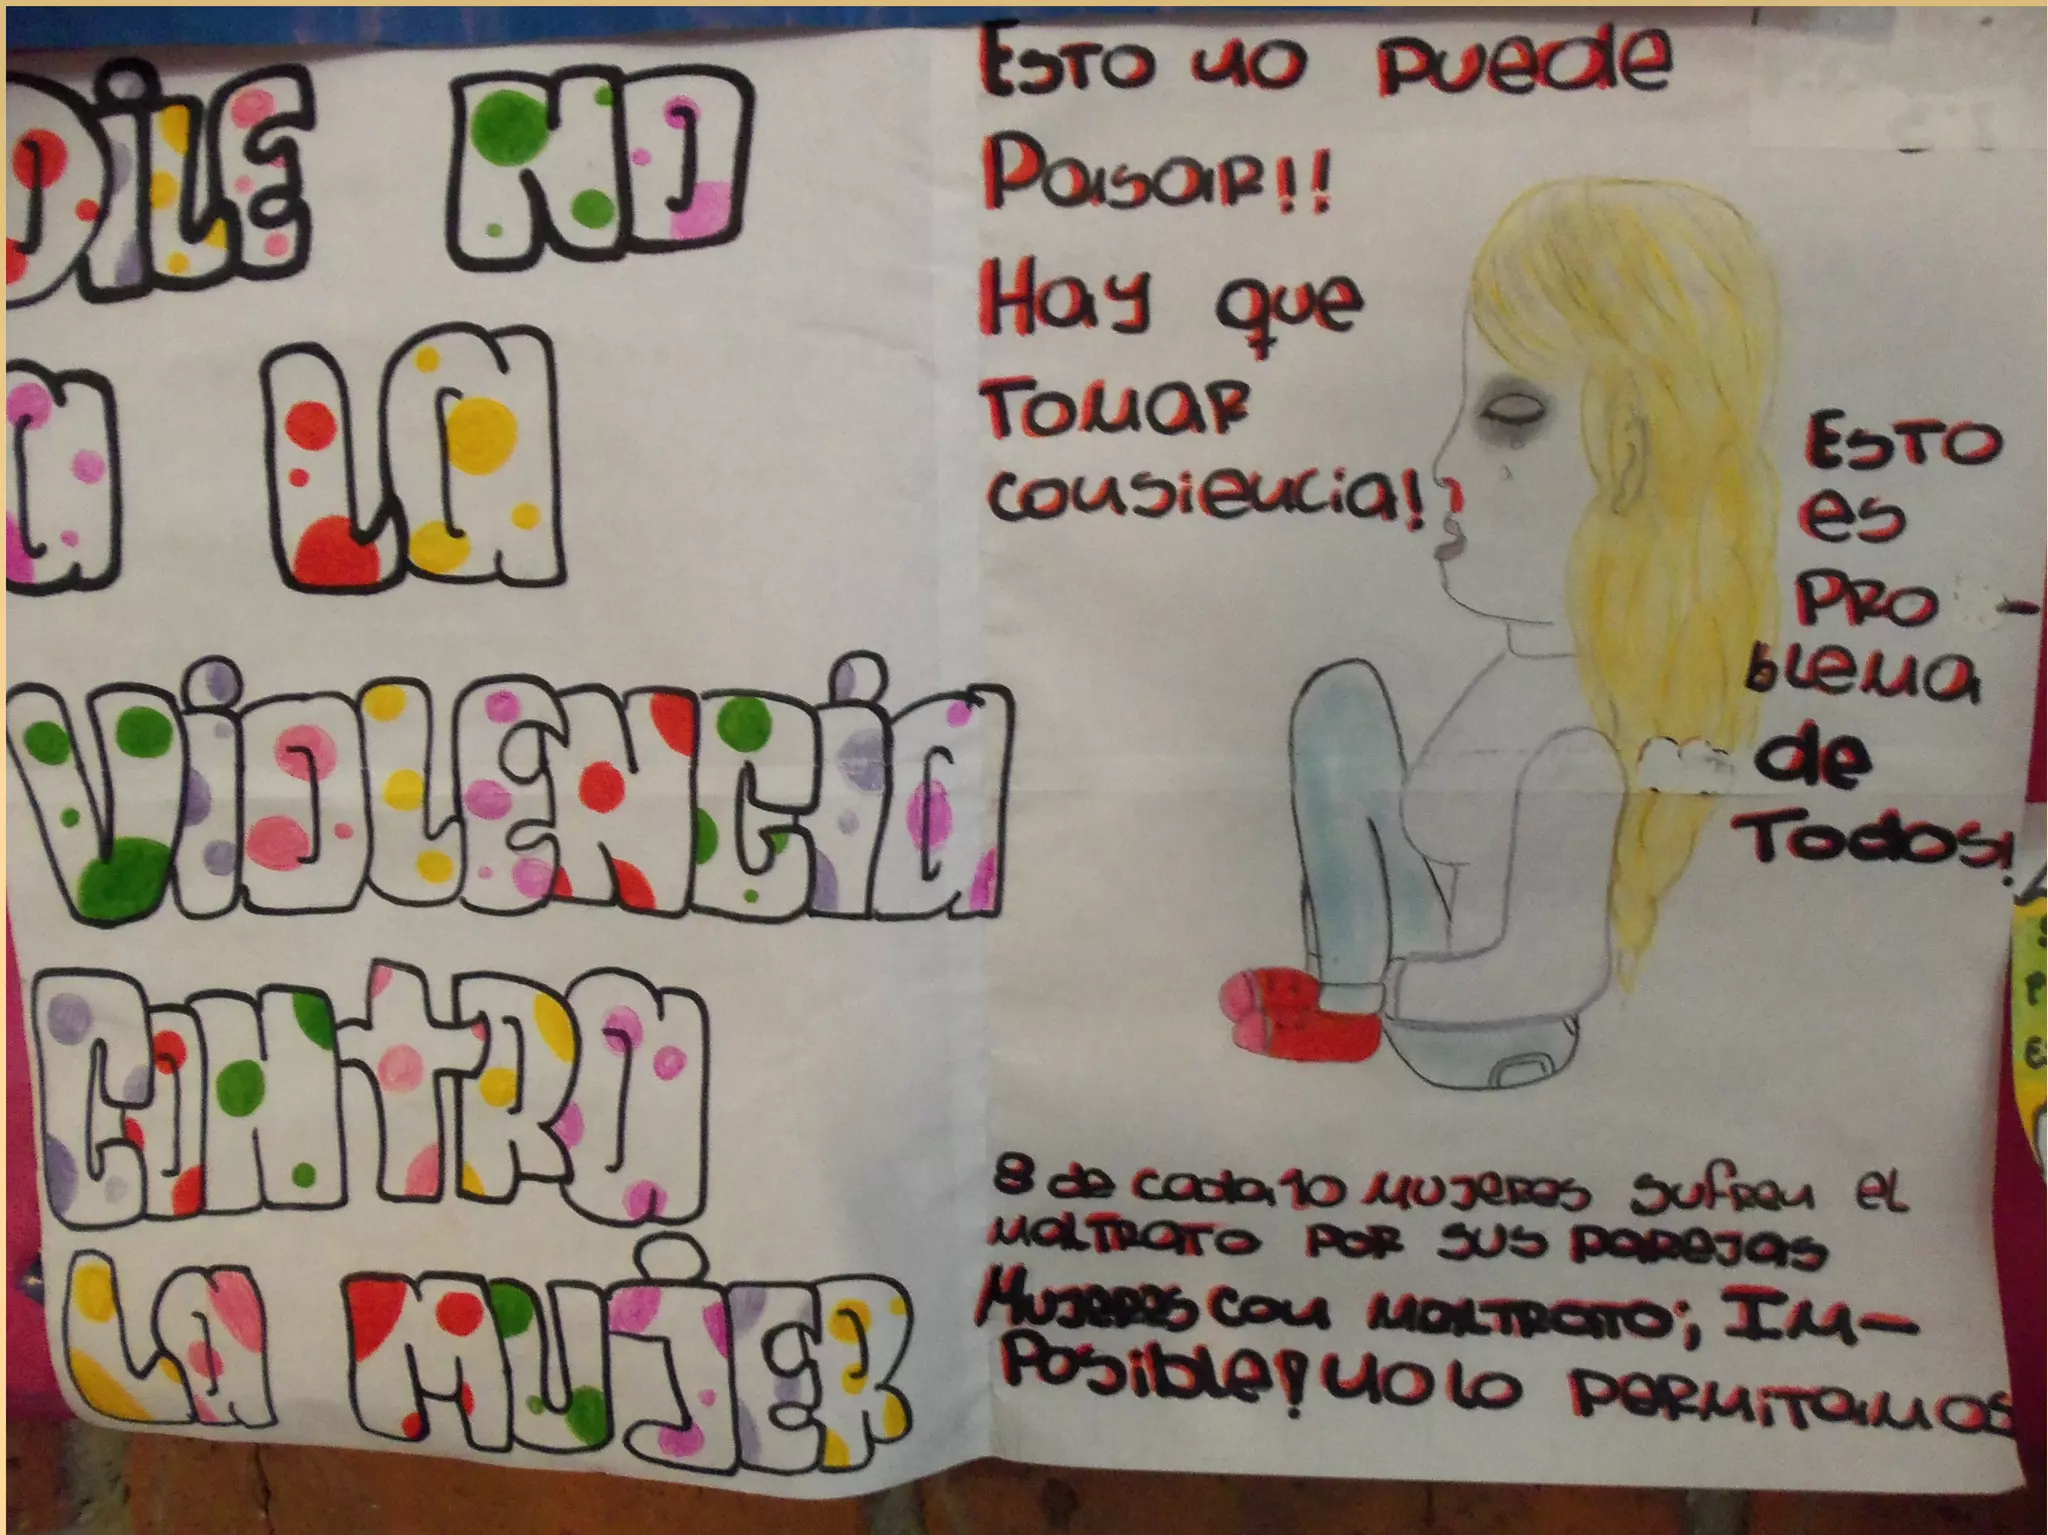 DiLE NO
a La
ViOLENCia
CONtRa
La MUJER
Esto no puede
Pasar!!
Hay que
Tomar
consiencia!
Esto
es
Pro-
blema
de
Todos!
8 de cada 10 mujeres sufren el
maltrato por sus parejas
Mujeres con maltrato; Im-
posible! no lo permitamos